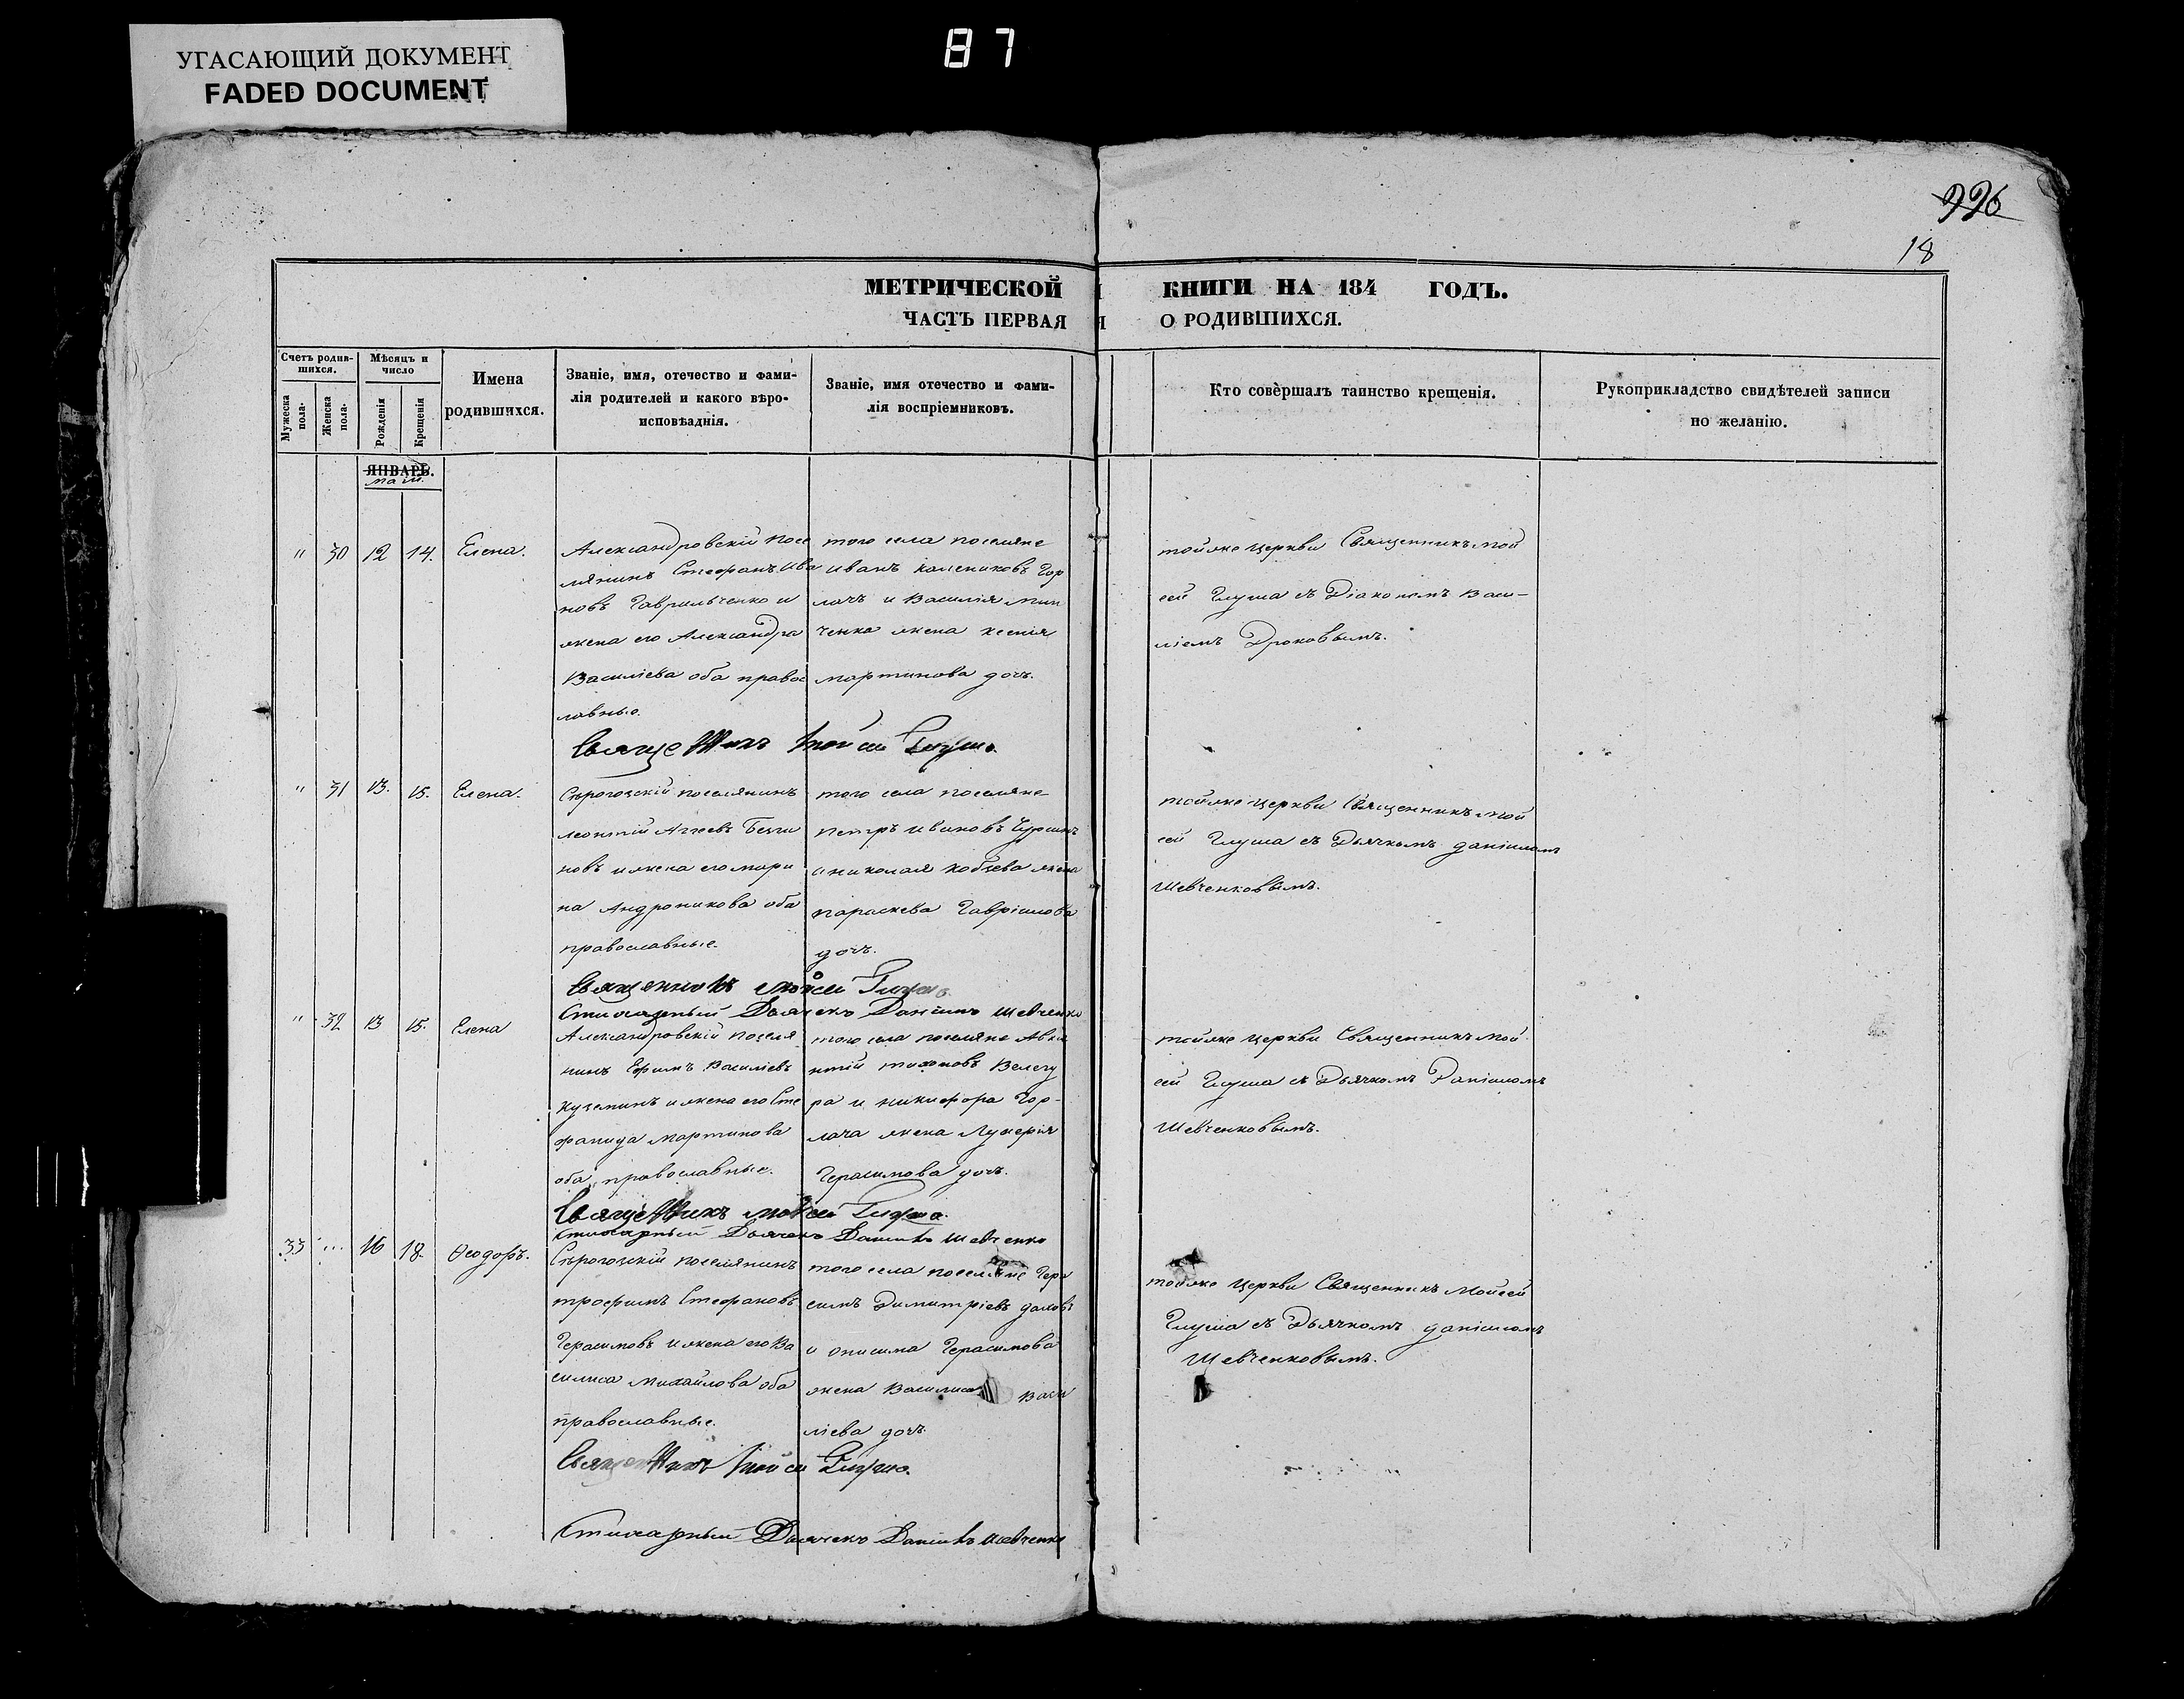 УГАСАЮЩИЙ ДОКУМЕНТ
FADED DOCUMENT
87
996
18
МЕТРИЧЕСКОЙ КНИГИ НА 184 ГОДЪ.
ЧАСТЬ ПЕРВАЯ О РОДИВШИХСЯ.
Счетъ родив-
шихся.
Мужеска
пола.
Женска
пола.
Мѣсяцъ и
число
Рожденія
Крещенія
Имена
родившихся.
Званіе, имя, отечество и фами-
лія родителей и какого вѣро-
исповѣаднія.
Званіе, имя отечество и фами-
лія воспріемниковъ.
Кто совершалъ таинство крещенія.
Рукоприкладство свидѣтелей записи
по желанію.
ЯНВАРЬ.
май.
" 30 12 14. Елена.
Александровскій посе
лянинъ Стефанъ Ива
новъ Гаврильченко и
жена его Александра
Василіева оба правос
лавные.
того села поселяне
Иванъ Гор
лачъ и Василія Мин
ченка жена Ксенія
Мартинова доч.
тойже церкви Священникъ Мой
сей Глуша съ Діакономъ Васи-
ліемъ Дроковымъ.
Священникъ Мойсей Глуша.
" 31 13. 15. Елена.
Сѣрогозскій поселянинъ
Леонтій Аггеевъ
новъ и жена его Мари
на Андроникова оба
православные.
того села поселяне
Петръ Ивановъ
и Николая Кобзева жена
Параскева Гавріилова
доч.
тойже церкви Священникъ Мой
сей Глуша съ Дьячкомъ Даніиломъ
Шевченковымъ.
Священникъ Мойсей Глуша.
Стихарный Дьячекъ Даніилъ Шевченко
" 32 13 15. Елена
Александровскій поселя
нинъ Ефимъ Василіевъ
Куземинъ и жена его Сте
фанида Мартинова
оба православные.
того села поселяне Авкс
нтій Тихоновъ Велегу
ра и Никифора Гор-
лача жена Лукерія
Герасимова доч.
тойже церкви Священникъ Мой
сей Глуша съ Дьячкомъ Даніиломъ
Шевченковымъ.
Священникъ Мойсей Глуша.
Стихарный Дьячекъ Даніилъ Шевченко
33 ... 16 18. Ѳеодоръ.
Сѣрогозскій поселянинъ
Трофимъ Стефановъ
Герасимовъ и жена его Ва
силиса Михайлова оба
православные.
того села поселяне Гера
симъ Димитріевъ
и Онисима Герасимова
жена Василиса Васи
ліева доч.
тойже церкви Священникъ Мойсей
Глуша съ Дьячкомъ Даніиломъ
Шевченковымъ.
Священникъ Мойсей Глуша.
Стихарный Дьячекъ Даніилъ Шевченко